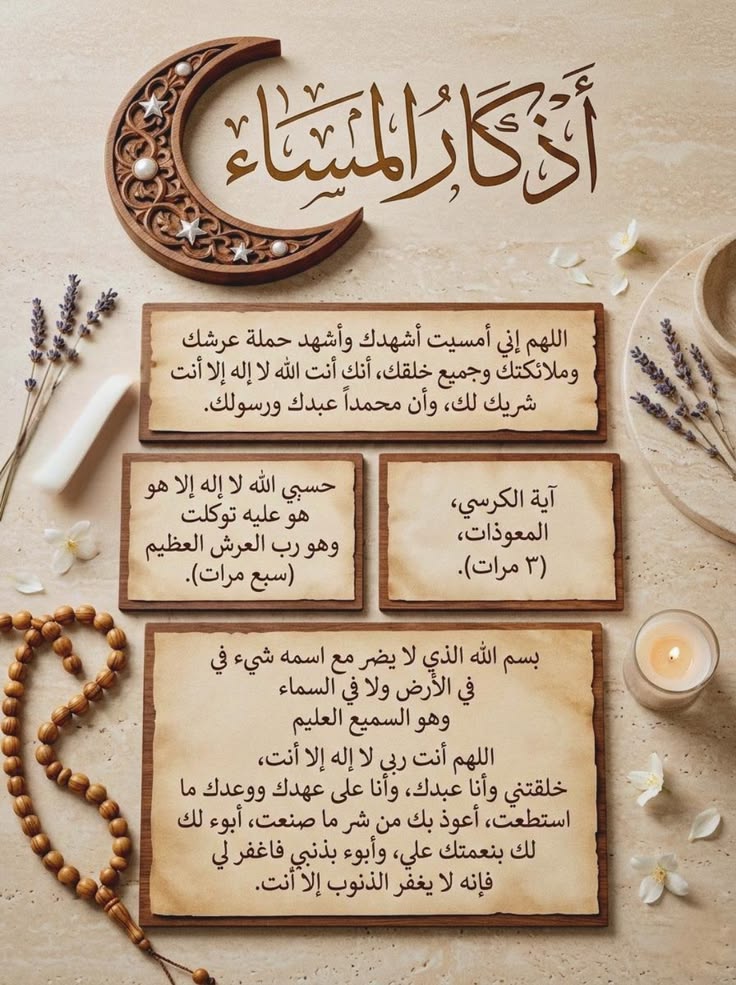 أذكار المساء
اللهم إني أمسيت أشهدك وأشهد حملة عرشك
وملائكتك وجميع خلقك، أنك أنت الله لا إله إلا أنت
شريك لك، وأن محمداً عبدك ورسولك.
آية الكرسي،
المعوذات،
(٣ مرات).
حسبي الله لا إله إلا هو
هو عليه توكلت
وهو رب العرش العظيم
(سبع مرات).
بسم الله الذي لا يضر مع اسمه شيء في
في الأرض ولا في السماء
وهو السميع العليم
اللهم أنت ربي لا إله إلا أنت،
خلقتني وأنا عبدك، وأنا على عهدك ووعدك ما
استطعت، أعوذ بك من شر ما صنعت، أبوء لك
لك بنعمتك علي، وأبوء بذنبي فاغفر لي
فإنه لا يغفر الذنوب إلا أنت.